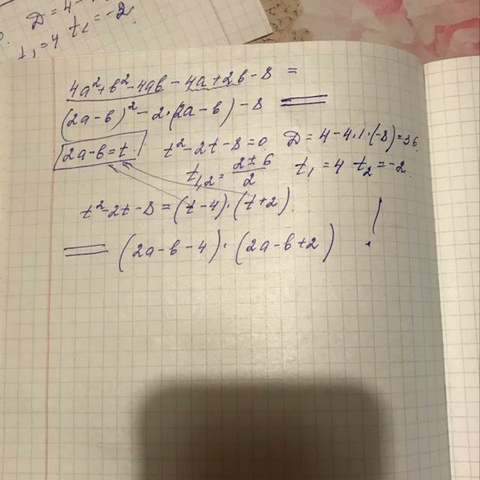 D = 4 -
t₁ = 4 t₂ = -2
4a² + b² - 4ab - 4a + 2b - 8 =
(2a - b)² - 2·(2a - b) - 8 =
2a - b = t ! t² - 2t - 8 = 0 D = 4 - 4·1·(-8) = 36
t₁,₂ = (2 ± 6)/2 t₁ = 4 t₂ = -2
t² - 2t - 8 = (t - 4)·(t + 2)
= (2a - b - 4)·(2a - b + 2) !